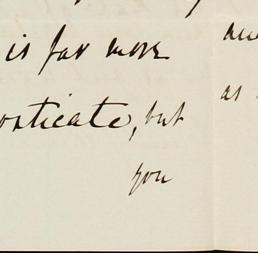 is far more
orticate, but
you
as